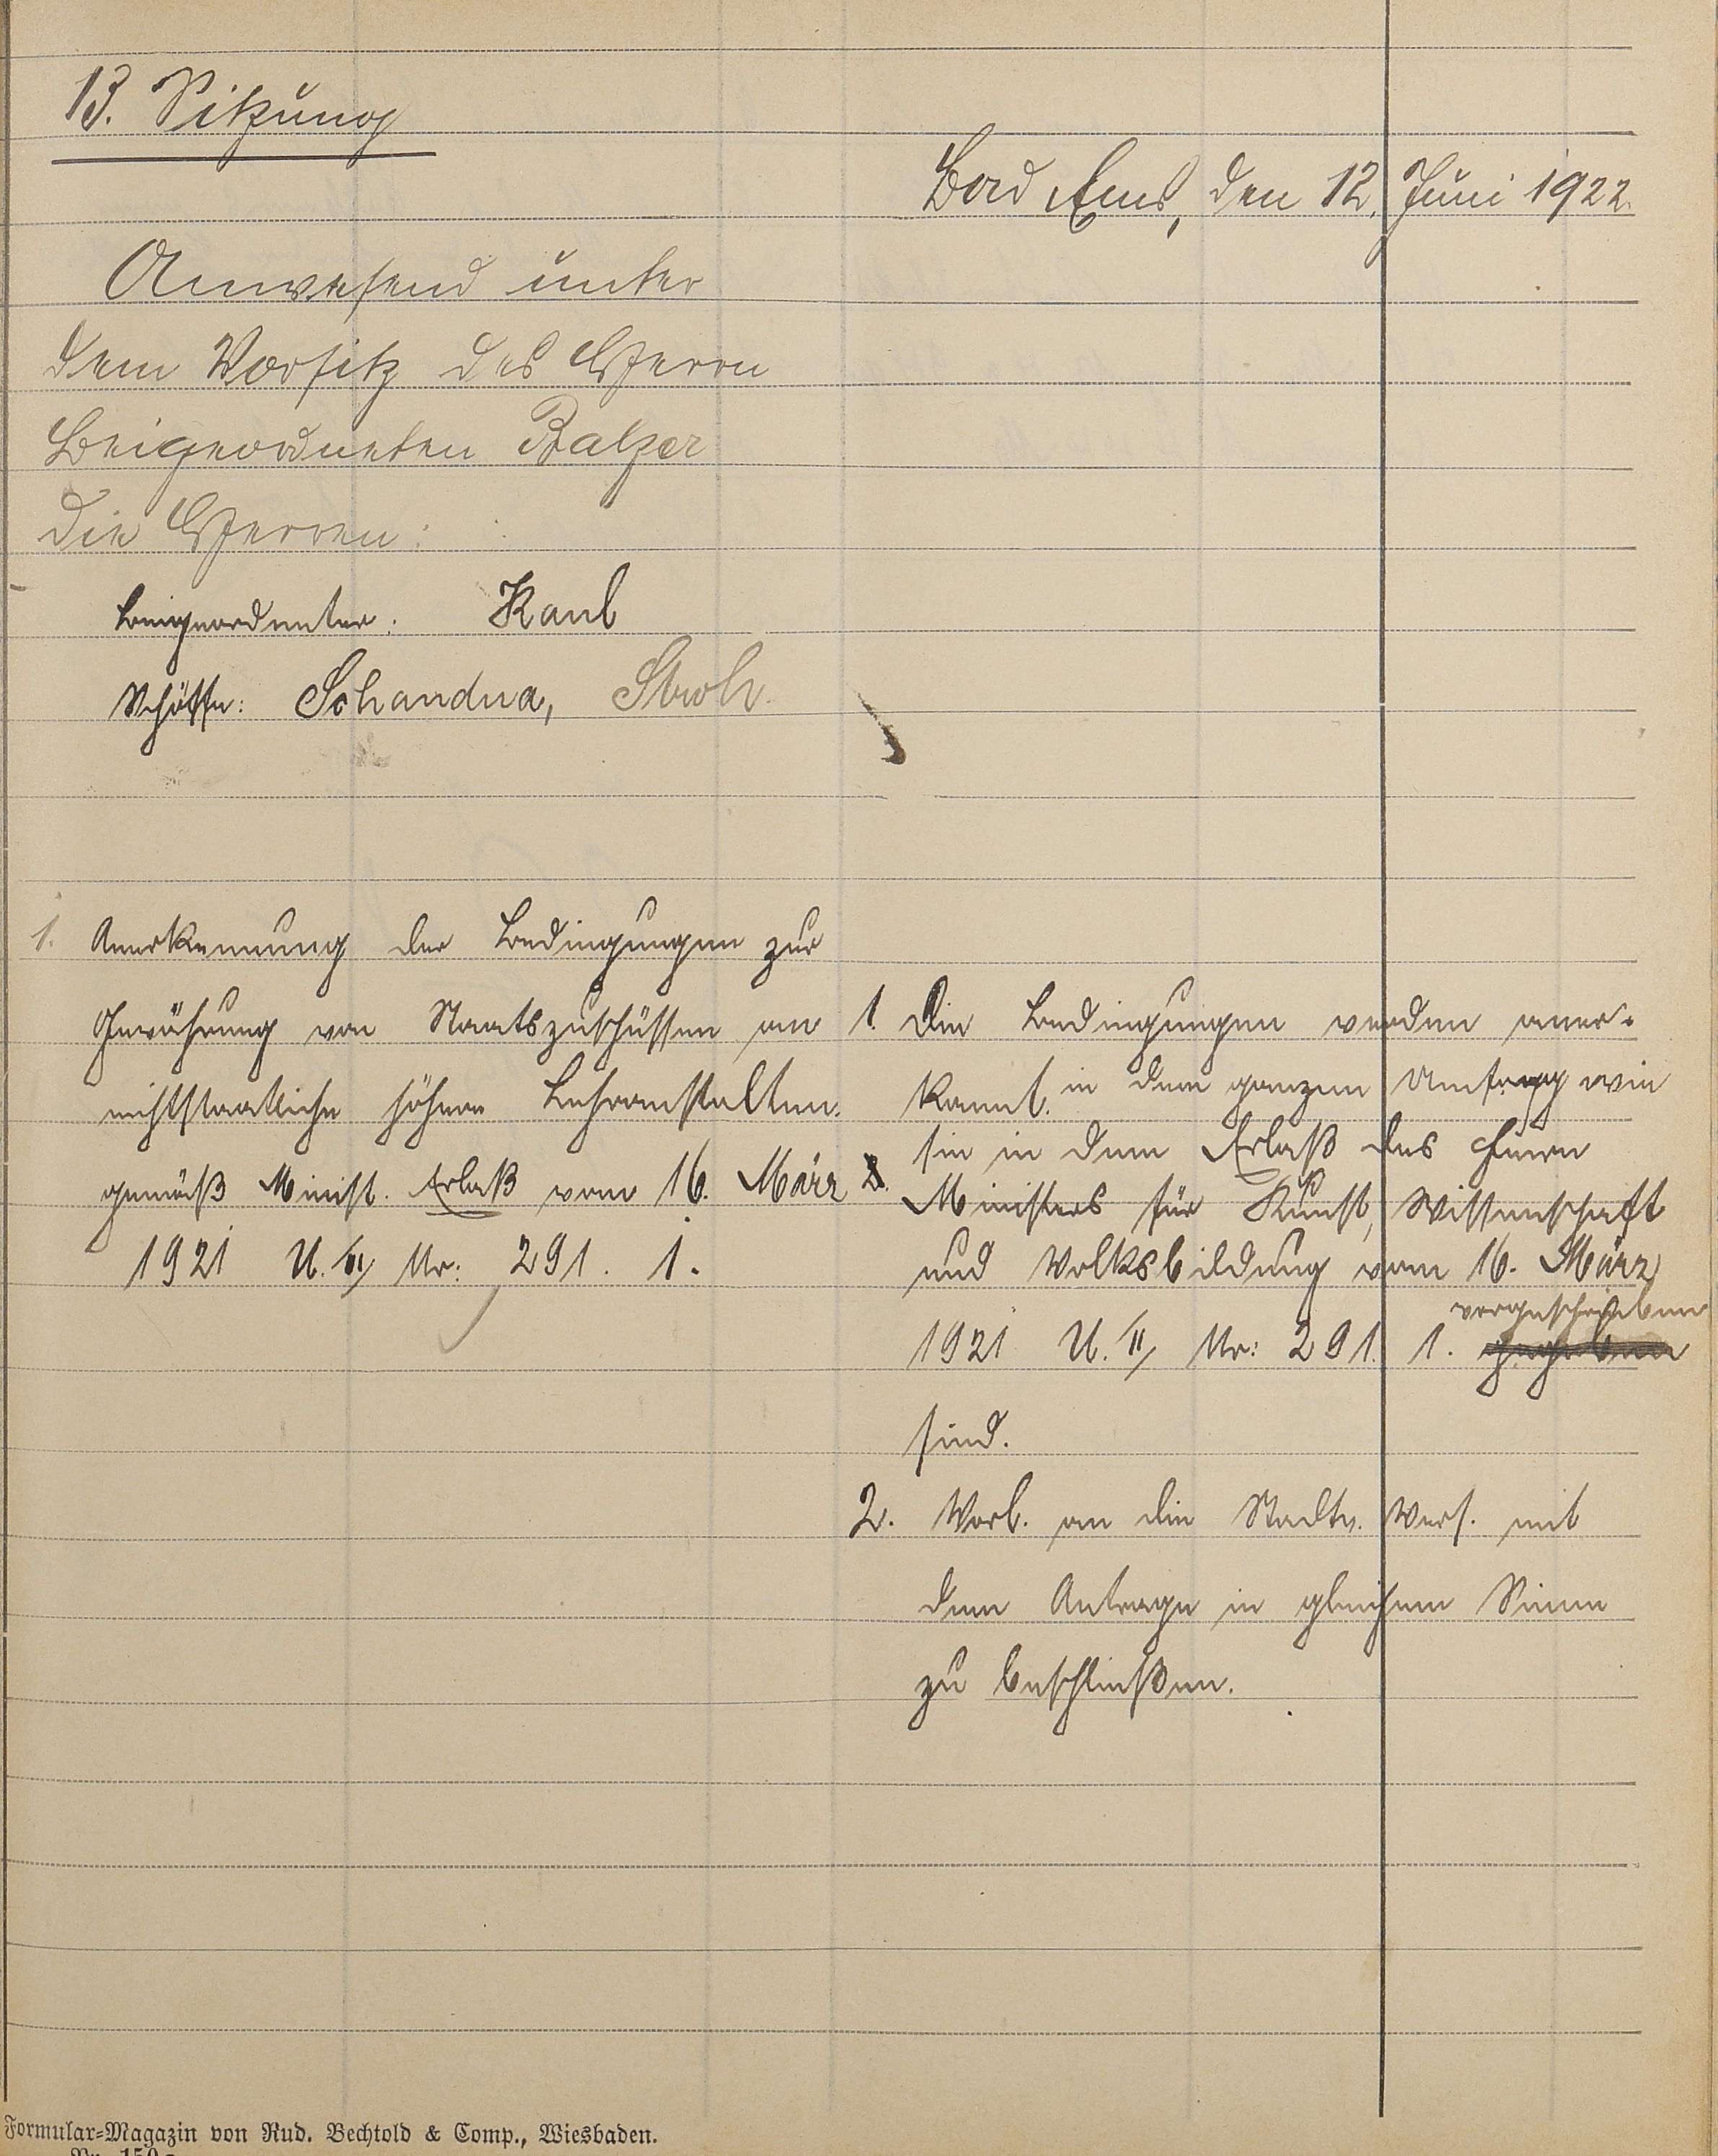 13. Sitzung
Bad Ems, den 12. Juni 1922.
Anwesend unter
dem Vorsitz des Herrn
Beigeordneten Balzer
die Herren:
Beigeordneter: Kaul
Schöffen: Schandua, Stroh.
1. Anerkennung der Bedingungen zur
Gewährung von Staatszuschüssen an
nichtstaatliche höhere Lehranstalten.
gemäß Minist. Erlaß vom 16. März
1921 U. II, Nr: 291. 1.
1. Die Bedingungen werden aner-
kannt. in dem ganzen Umfang wie
sie in dem Erlaß des Herrn
Ministers für Kunst, Wissenschaft
und Volksbildung vom 16. März
vorgeschrieben
1921 U. II, Nr: 291. 1. gegeben
sind.
2. Vorl. an die Stadtv. Vers. mit
dem Antrage in gleichem Sinne
zu beschließen.
Formular-Magazin von Rud. Bechtold & Comp., Wiesbaden.